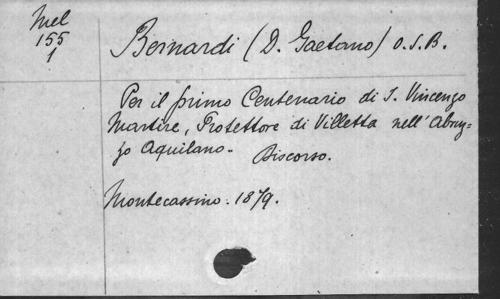 Mel
155
1
Bernardi (D. Gaetano) O.S.B.
Per il primo Centenario di S. Vincenzo
Martire, Protettore di Villetta nell'Abruz=
zo Aquilano. Discorso.
Montecassino. 1879.